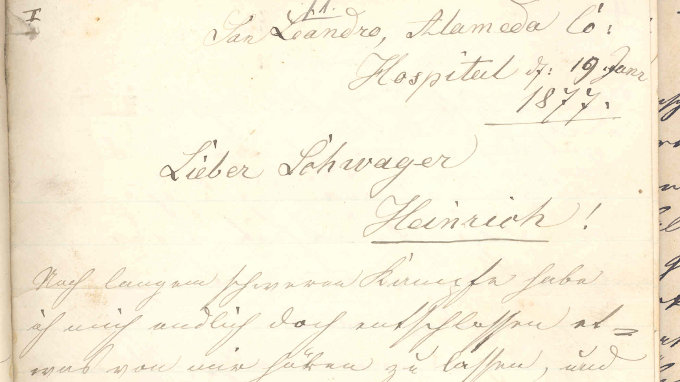 I
11.
San Leandro, Alameda Co:
Hospital d: 19 Janr
1877.
Lieber Schwager
Heinrich!
Nach langem schweren Kampfe habe
ich mich endlich doch entschlossen et=
was von mir hören zu lassen, und